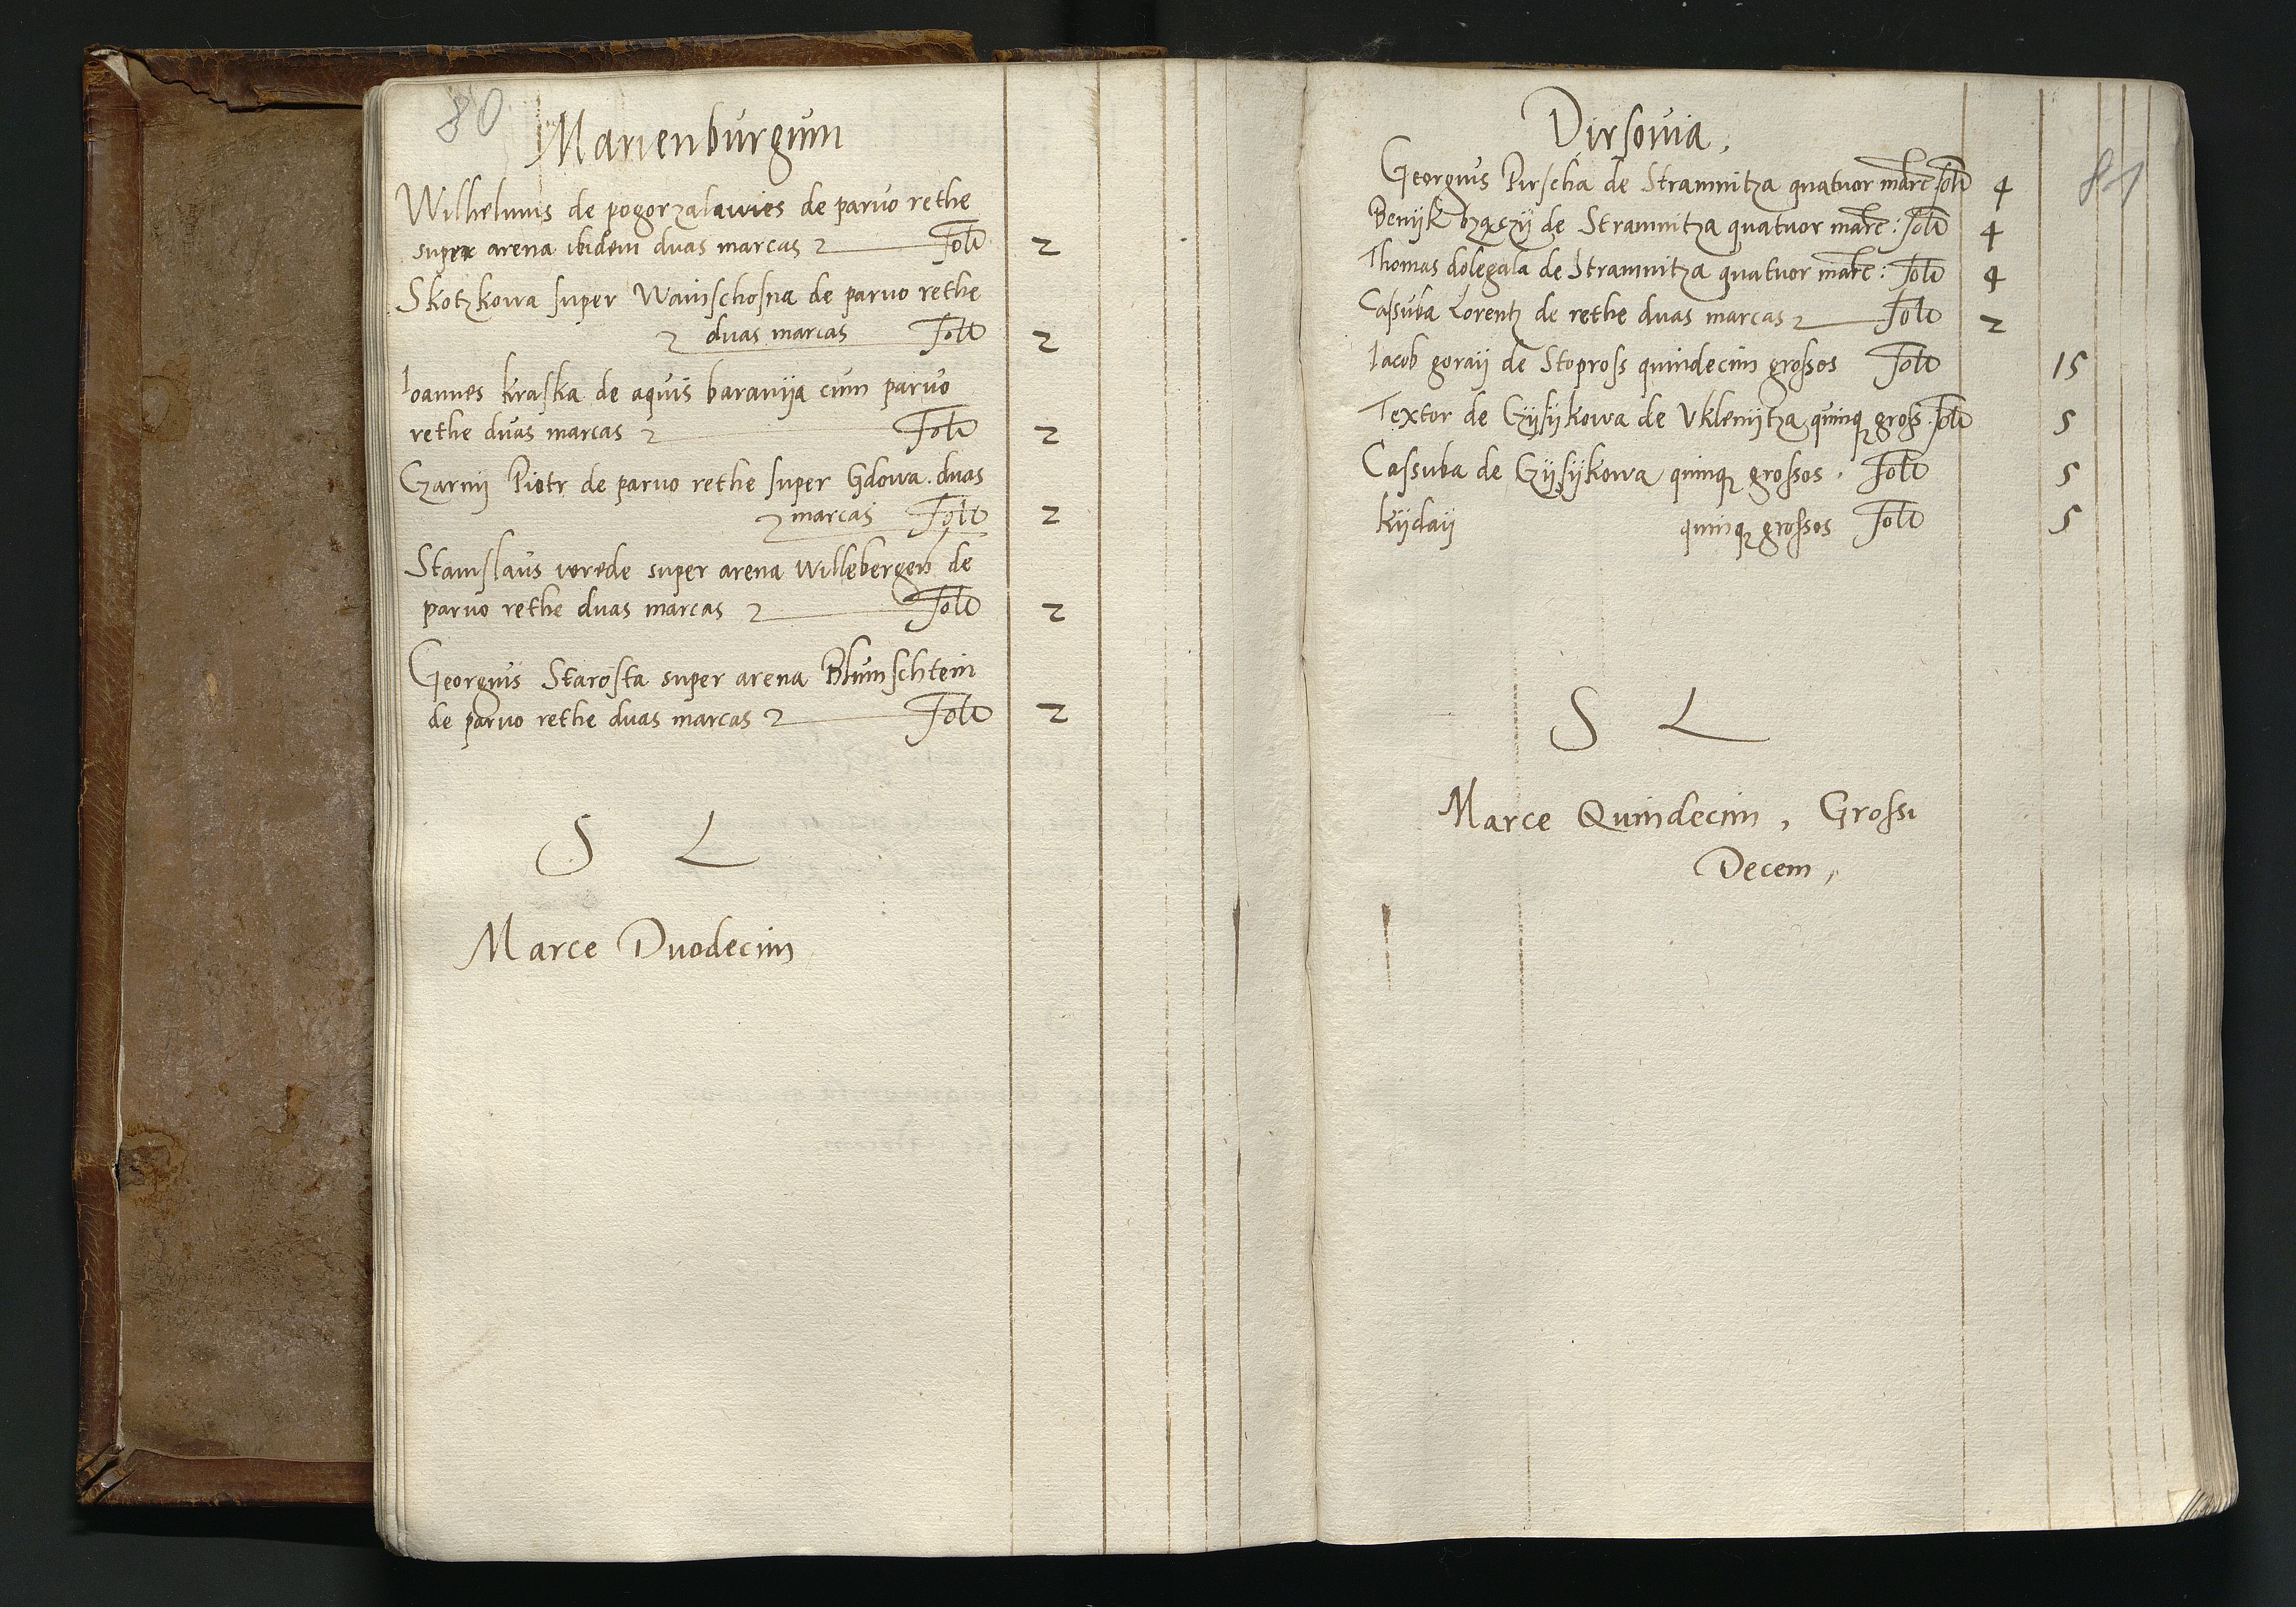 80
Marienburgum
Wilhelmus de pogorzalawies de paruo rethe
super arena ibidem duas marcas 2 Solt 2
Skotzkowa super Wainschosna de paruo rethe
2 duas marcas Solt 2
Ioannes kraska de aquis baranÿa cum paruo
rethe duas marcas 2 Solt 2
Czarnÿ Piotr de paruo rethe super Gdowa . duas
2 marcas Solt 2
Stanislaus wrede super arena willebergen de
paruo rethe duas marcas 2 Solt 2
Georgius Starosta super arena Blumschtein
de paruo rethe duas marcas 2 Solt 2
S L
Marce Duodecim
81
Dirsouia,
Georgius Pirscha de Stramnitza quatuor marc Solt 4
Benÿk de Stramnitza quatuor marc : Solt 4
Thomas dolegala de Stramnitza quatuor marc : Solt 4
Cassuba Lorentz de rethe duas marcas 2 Solt 2
Iacob goraÿ de Stopross quindecim grossos Solt 15
Textor de Czÿsÿkowa de Vklenÿtza quinq gross . Solt 5
Cassuba de Czÿsÿkowa quinq grossos . Solt 5
kÿdaÿ quinq grossos Solt 5
S L
Marce Quindecim , Grossi
Decem ,